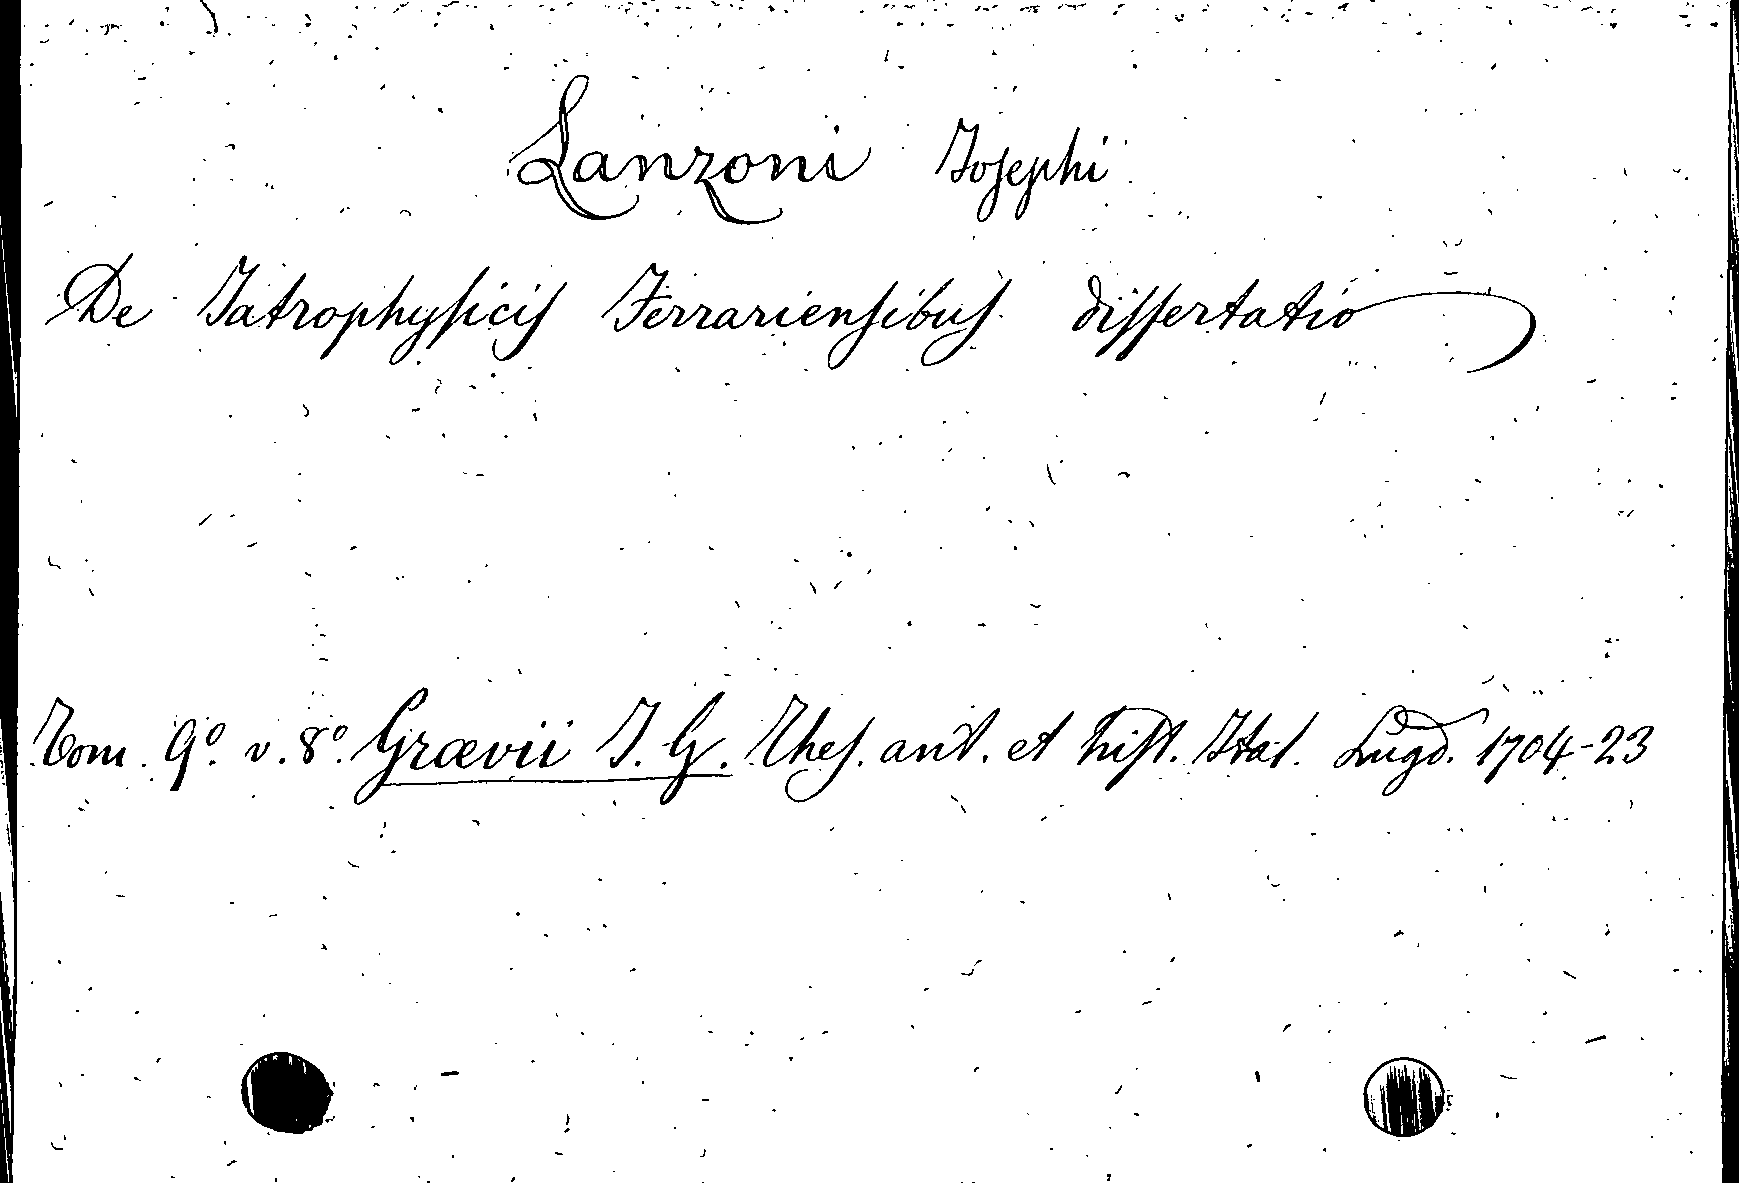 Lanzoni Josephi
De Jatrophysicis Ferrariensibus dissertatio
Tom. 9º. v. 8º. Grævii J. G. Thes. ant. et hist. Ital. Lugd. 1704-23